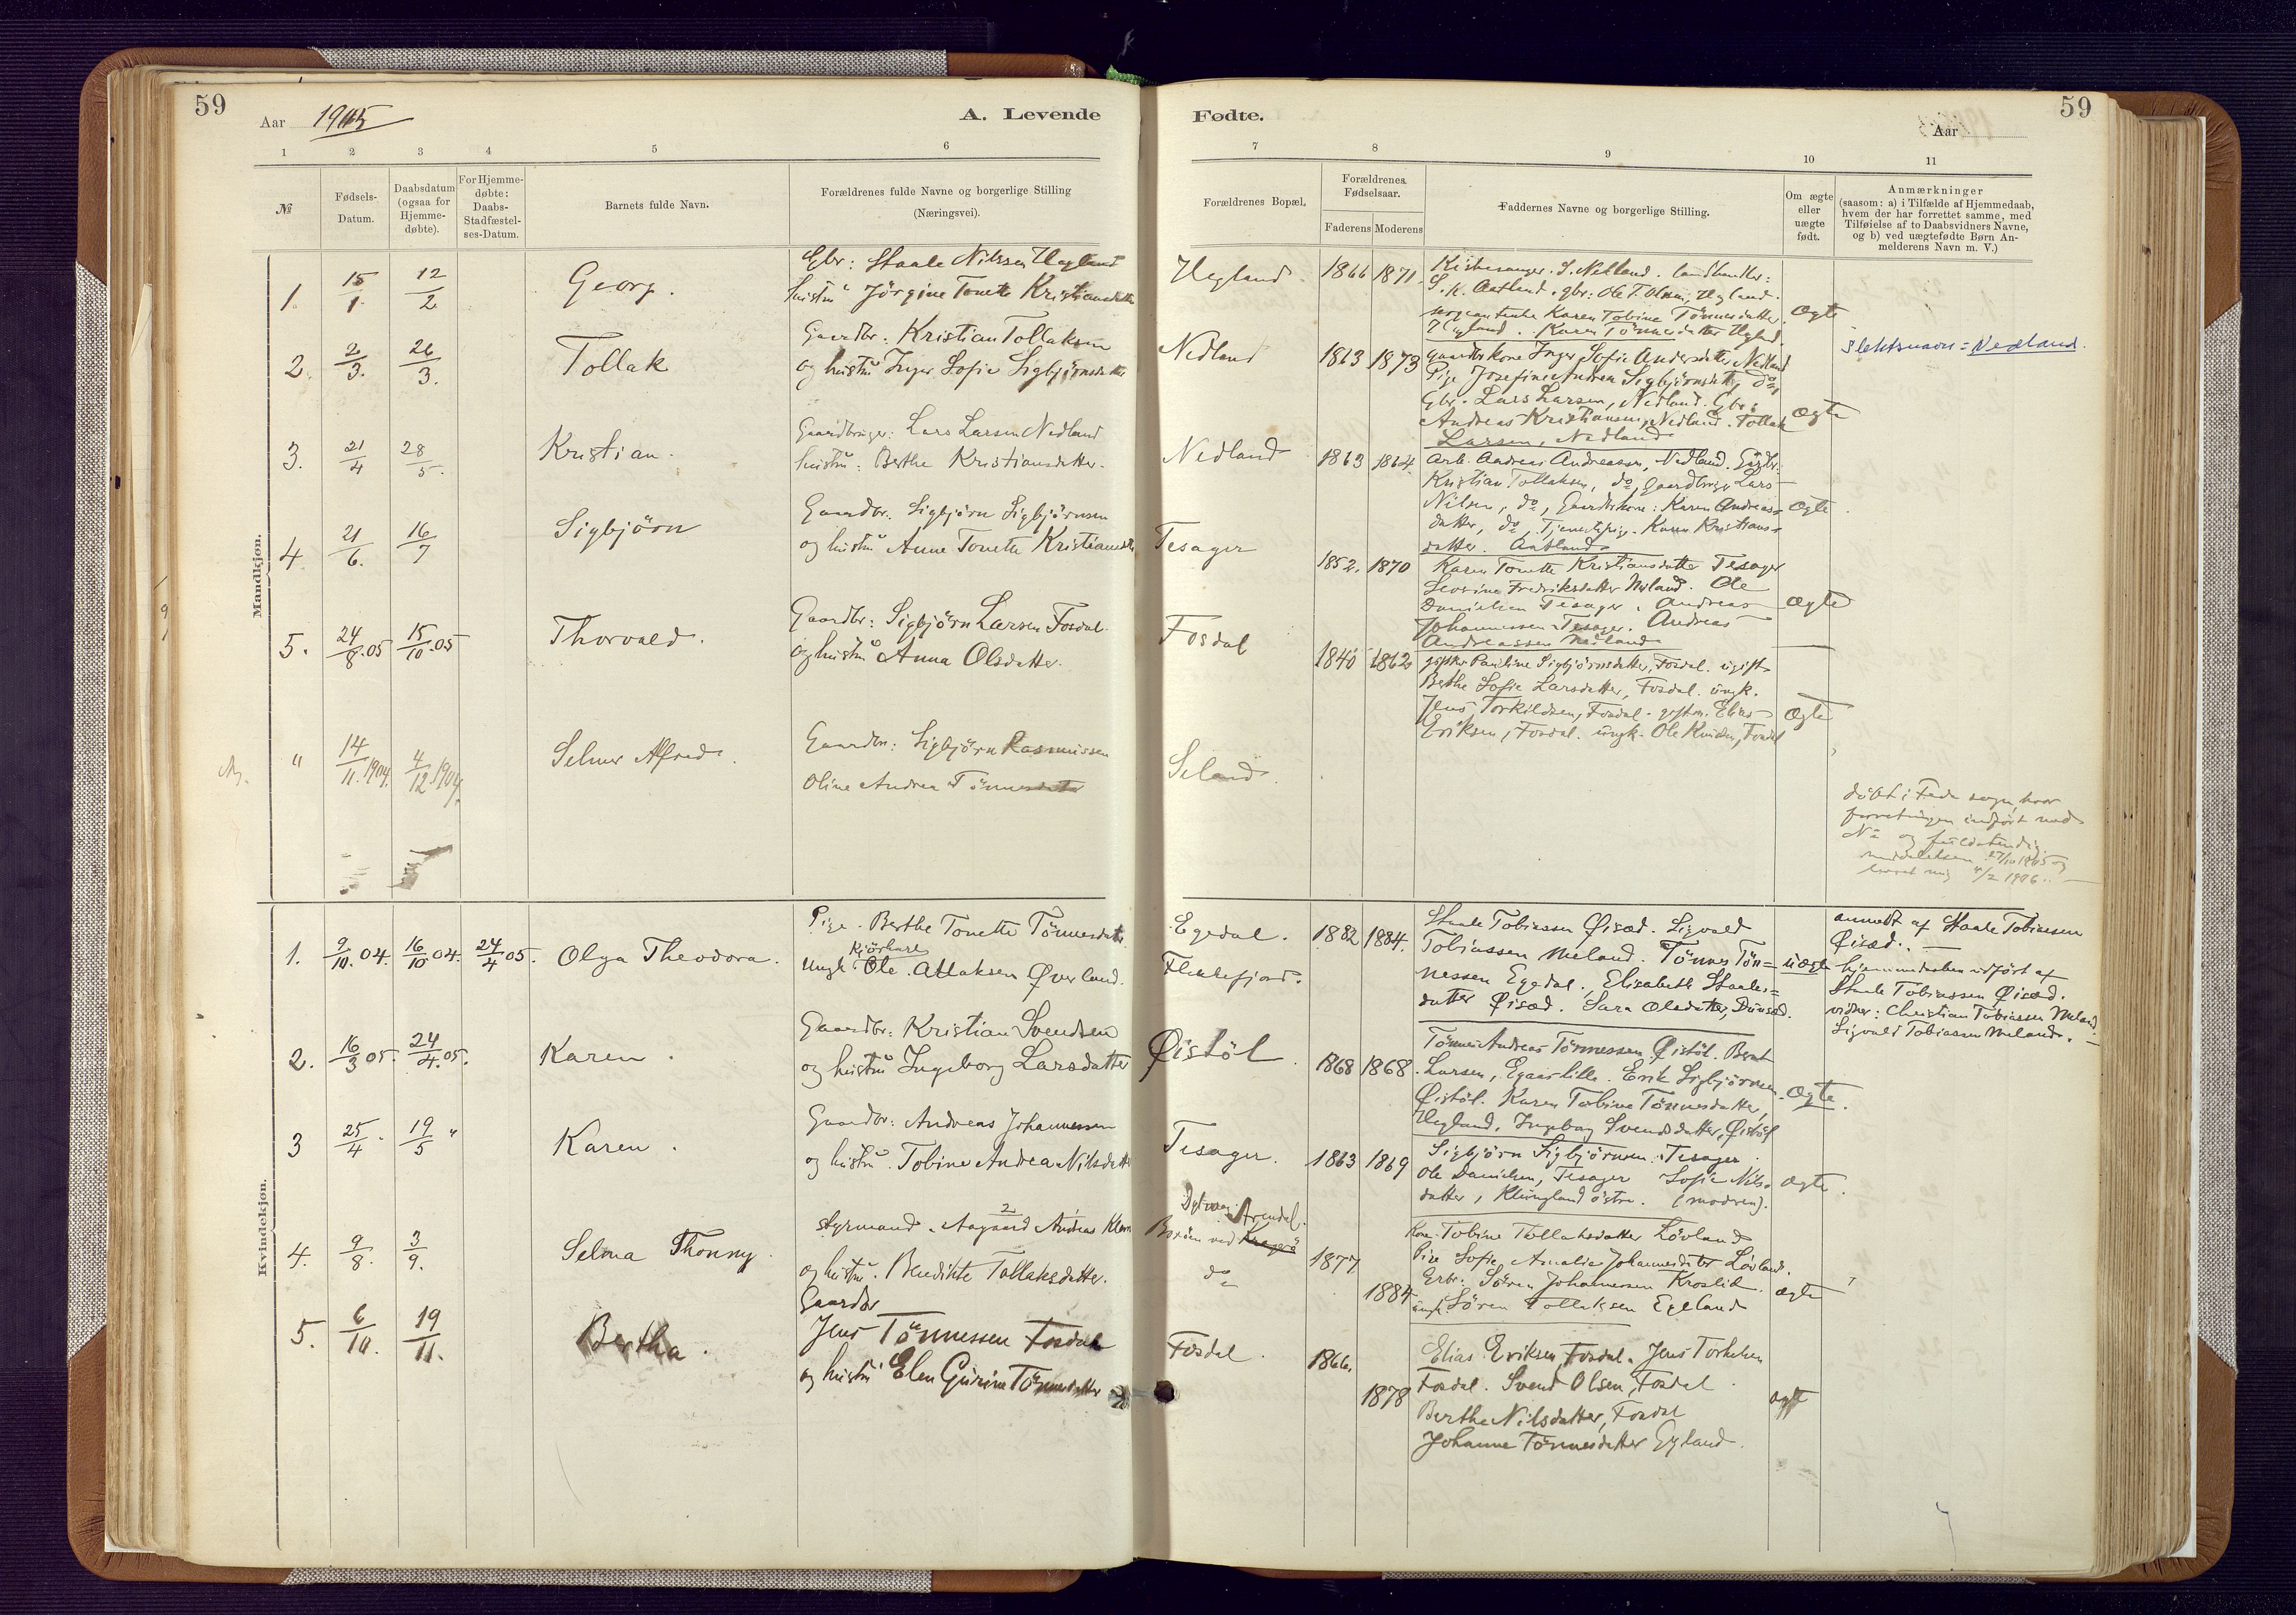 59
Aar 1905
A. Levende
Fødte.
Aar
59
1
2
3
4
5
6
7
8
9
10
11
№
Fødsels-
Datum.
Daabsdatum
(ogsaa for
Hjemme-
døbte).
For Hjemme-
døbte:
Daabs-
Stadfæstel-
ses-Datum.
Barnets fulde Navn.
Forældrenes fulde Navne og borgerlige Stilling
(Næringsvei).
Forældrenes Bopæl.
Forældrenes
Fødselsaar.
Faderens
Moderens
Faddernes Navne og borgerlige Stilling.
Om ægte
eller
uægte
født.
Anmærkninger
(saasom: a) i Tilfælde af Hjemmedaab,
hvem der har forrettet samme, med
Tilføielse af to Daabsvidners Navne,
og b) ved uægtefødte Børn An-
melderens Navn m. V.)
Mandkjøn.
1. 15/1. 12/2 Georg.
Gbr: Staale Nilssen Hegland
hustru Jörgine Tonette Kristiansdatter
Hegland. 1866 1871.
Kirkesanger S. Netland. landhandler:
S. K. Aatland. gbr: Ole T. Olsen, Hegland.
Karen Tobine Tönnesdatter
Hegland. Karen Tönnesdatter Hegland.
Ægte
2. 2/3. 26/3. Tollak
Gaardbr: Kristian Tollaksen
og hustru Inger Sofie Sigbjörnsdatter
Nedland 1863 1873
gaardbrkone Inger Sofie Andersdatter Nedland
Pige Josefine Andrea Sigbjörnsdatter, do,
Gbr. Lars Larsen, Nedland. Gbr:
Andreas Kristiansen, Nedland. Tollak
Larsen, Nedland
Ægte
Slektsnavn = Nedland.
3. 21/4 28/5. Kristian.
Gaardbruger: Lars Larsen Nedland
hustru: Berthe Kristiansdatter.
Nedland 1863 1864.
Arb. Andreas Andreassen, Nedland. Gbr:
Kristian Tollaksen, do, gaardbruger Lars
Nilsen, do, Gaardbrkone: Karen Andreas-
datter, do, Tjenestepige. Karen Kristians-
datter. Aatland
Ægte.
4. 21/6. 16/7 Sigbjörn
Gaardbr. Sigbjörn Sigbjörnsen
og hustru Anne Tonette Kristiansdtr
Tesager 1852. 1870
Karen Tonette Kristiansdatter Tesager
Fredriksdatter Meland. Ole
Danielsen Tesager. Andreas
Johannessen Tesager. Andreas
Andreassen Meland
Ægte
5. 24/8.05 15/10.05 Thorvald.
Gaardbr: Sigbjörn Larsen Fosdal
og hustru Anna Olsdatter.
Fosdal 1840 1862
Pauline Sigbjörnsdatter, Fosdal. ugift
Berthe Sofie Larsdatter, Fosdal. ungk.
Jens Torkildsen, Fosdal. Elias
Eriksen, Fosdal. ungk. Ole Fosdal
Ægte
" 14/11.1904. 4/12.1904. Selmer Alfred.
Gaardbr: Sigbjörn Rasmussen
Oline Andrea Tönnesdatter
Seland.
döbt i Feda sogn, hvor
forretningen indfört med
No og fuldstændig
meddelelsen 27/10 1905 og
4/2 1906.
Kvindekjøn.
1. 9/10.04. 16/10 04. 24/4 05. Olga Theodora.
Pige. Berthe Tonette Tönnesdatter
Ungk Ole Atlaksen Øverland.
Egedal. Flekkefjord. 1882 1884.
Staale Tobiassen Øisæd. Sigvald
Tobiassen Meland. Tönnes Tön=
nessen Egedal. Elisabeth Staales=
datter Øisæd. Sara Olsdatter,
uægte
anmeldt af Staale Tobiassen
Øisæd.
hjemmedaaben udført af
Staale Tobiassen Øisæd.
vidner: Christian Tobiassen Meland
Sigvald Tobiassen Meland.
2. 16/3 05. 24/4.05. Karen.
Gaardbr: Kristian Svendsen
og hustru Ingeborg Larsdatter
Øistöl. 1868 1868.
Tönnes Andreas Tönnessen, Øistöl. Bernt
Larsen, Erik Sigbjörnsen
Øistöl. Karen Tobine Tönnesdatter,
Hegland. Ingeborg Svendsdatter, Øistöl
Ægte.
3 25/4 " 19/5 " Karen.
Gaardbr: Andreas Johannessen
og hustru. Tobine Andrea Nilsdatter
Tesager. 1863 1869
Sigbjörn Sigbjörnsen. Tesager.
Ole Danielsen, Tesager Sofie Nils-
datter, Klungland östre. (modren).
Ægte.
4. 9/8. 3/9. Selma Thonny.
Styrmand. Aagaard Andreas
og hustru. Benedikte Tollaksdatter.
Arendal.
Boröen ved Kragerö
do
1877 1884
Kone Tobine Tollaksdatter Lövland
Pige Sofie Amalie Johannesdtr Lövland.
Gbr: Sören Johannessen Kroslid.
ungk. Sören Tollaksen Egeland
ægte
5. 6/10. 19/11. Bertha.
Gaardbr
Jens Tönnessen Fosdal
og hustru Elen Gurine Tönnesdatter
Fosdal. 1866. 1878
Elias Eriksen, Fosdal. Jens Torkelsen
Fosdal. Svend Olsen, Fosdal
Berthe Nilsdatter, Fosdal
Johanne Tönnesdatter Egeland.
ægte